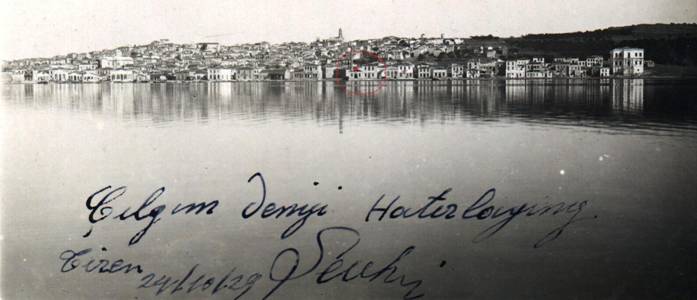 Çılgın Denizi Hatırlayınız.
Tiren 24/10/29 Şevki